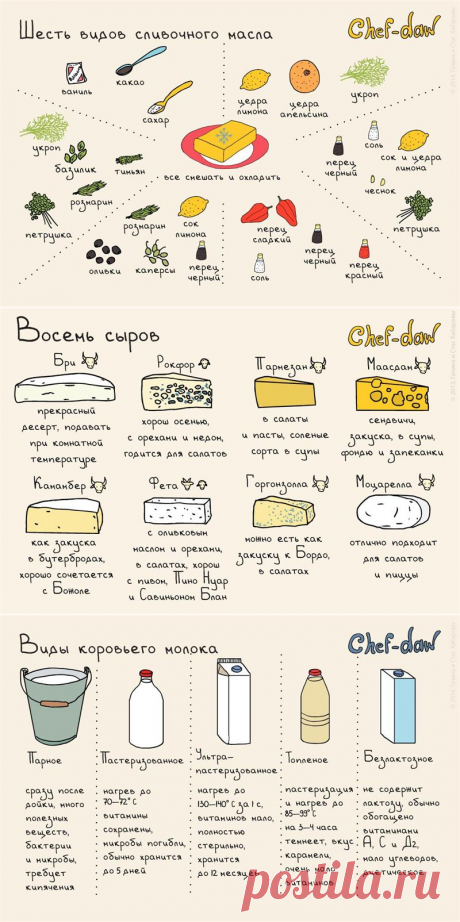 Шесть видов сливочного масла
Chef-daw
ваниль
какао
сахар
цедра
лимона
цедра
апельсина
укроп
укроп
базилик
тимьян
розмарин
петрушка
все смешать и охладить
перец
черный
соль
сок и цедра
лимона
чеснок
петрушка
розмарин
сок
лимона
оливки
каперсы
перец
черный
перец
сладкий
соль
перец
черный
перец
красный
Восемь сыров
Chef-daw
Бри
прекрасный
десерт, подавать
при комнатной
температуре
Рокфор
хорош осенью,
с орехами и медом,
годится для салатов
Пармезан
в салаты
и пасты, соленые
сорта в супы
Маасдам
сендвичи,
закуска, в супы,
фондю и запеканки
Камамбер
как закуска
в бутербродах,
хорошо сочетается
с Божоле
Фета
с оливковым
маслом и орехами,
в салатах, хорош
с пивом, Пино Нуар
и Савиньоном Блан
Горгонзолла
можно есть как
закуску к Бордо,
в салатах
Моцарелла
отлично подходит
для салатов
и пиццы
Виды коровьего молока
Chef-daw
Парное
сразу после
дойки, много
полезных
веществ,
бактерии
и микробы,
требует
кипячения
Пастеризованное
нагрев до
70-72° С
витамины
сохранены,
микробы погибли,
обычно хранится
до 5 дней
Ультра-
пастеризованное
нагрев до
130-140° С за 1 с,
витаминов мало,
полностью
стерильно,
хранится
до 12 месяцев
Топленое
пастеризация
и нагрев до
85-99° С
на 3-4 часа
темнеет, вкус
карамели,
очень мало
витаминов
Безлактозное
не содержит
лактозу, обычно
обогащено
витаминами
А, С и Д2,
мало углеводов,
диетическое
postila.ru